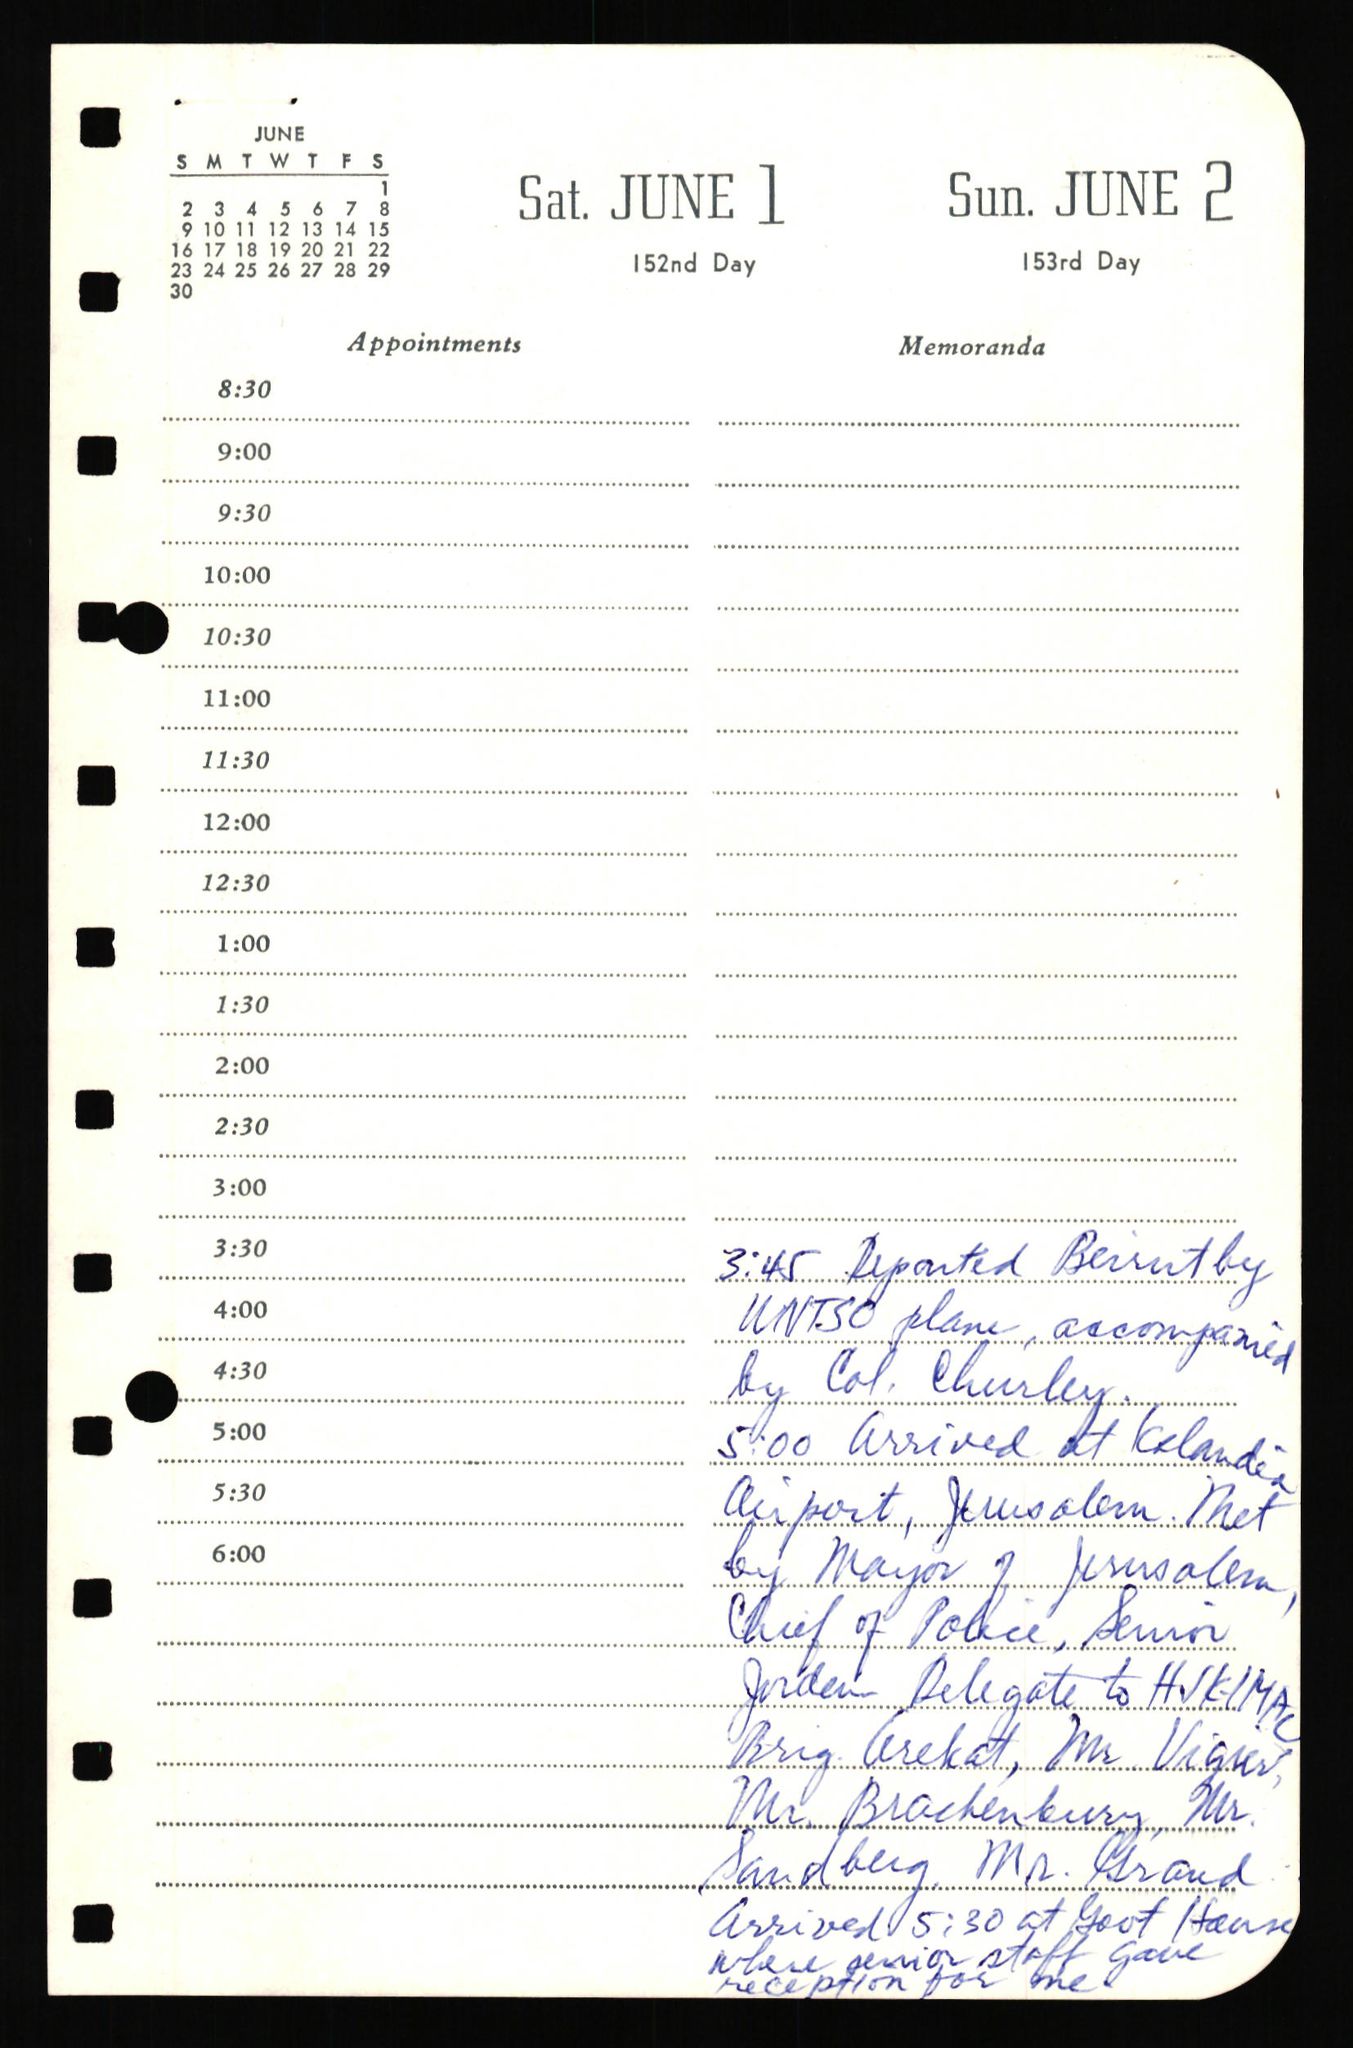 JUNE
S M T W T F S
1
2 3 4 5 6 7 8
9 10 11 12 13 14 15
16 17 18 19 20 21 22
23 24 25 26 27 28 29
30
Sat. JUNE 1
152nd Day
Sun. JUNE 2
153rd Day
Appointments
8:30
9:00
9:30
10:00
10:30
11:00
11:30
12:00
12:30
1:00
1:30
2:00
2:30
3:00
3:30
4:00
4:30
5:00
5:30
6:00
Memoranda
3:45 Departed Beirut by
UNTSO plane, accompanied
by Col. Churley.
5:00 Arrived at Kalandia
Airport, Jerusalem. Met
by Mayor of Jerusalem,
Chief of Police, Senior
Jordan Delegate to
Brig. Arekat, Mr. Vigier,
Mr. Brachenbury, Mr.
Sandberg, Mr. Giraud
Arrived 5:30 at Govt House
where senior staff gave
reception for me